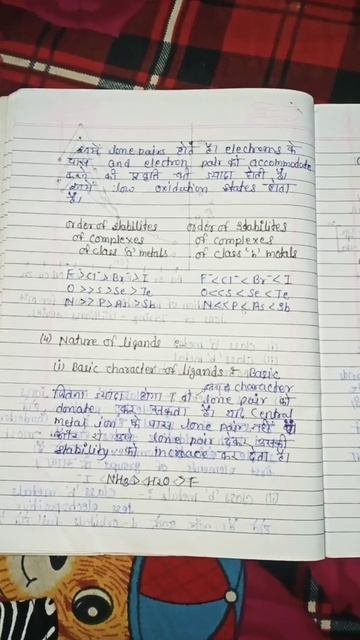 इनमें lone pairs होते है। electrons के
पास and electron pair को accommodate
करने की प्रवृति भी ज्यादा होती है।
इनमें low oxidation states होता
है।
order of stabilites order of stabilites
of complexes of complexes
of class 'a' metals of class 'b' metals
F⁻>Cl⁻>Br⁻>I F⁻<Cl⁻<Br⁻<I
O>>S>Se>Te O<<S<Se<Te
N>>P>As>Sb N<<P<As<Sb
(4) Nature of ligands
(i) Basic character of ligands : Basic
character
जितना ज्यादा होगा lone pair को
donate कर सकता है। यदि Central
metal ion के पास lone pair नही
lone pair देकर उसकी
stability को increase कर देता है।
NH3 > H2O > F